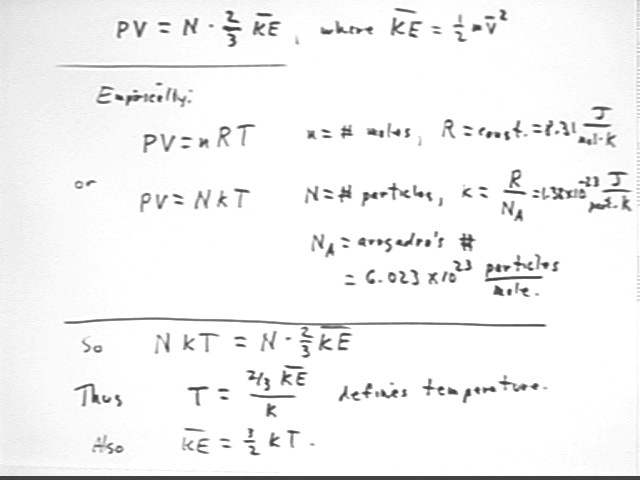 PV = N · 2/3 K̅E̅, where K̅E̅ = 1/2 m v̅²
Empirically:
PV = nRT n = # moles, R = const. = 8.31 J/mol·K
or PV = NkT N = # particles, k = R/N_A = 1.38×10⁻²³ J/part·K
N_A = avogadro's #
= 6.023 × 10²³ particles/mole.
So NkT = N · 2/3 K̅E̅
Thus T = 2/3 K̅E̅ / k defines temperature.
Also K̅E̅ = 3/2 kT.